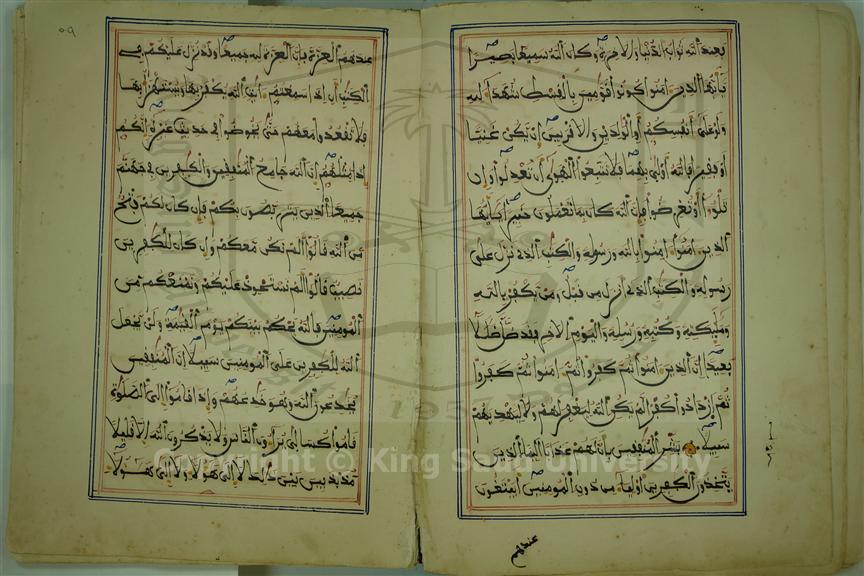 فعند الله ثواب الدنيا والاخرة وكان الله سميعا بصيرا
يايها الذين امنوا كونوا قومين بالقسط شهداء لله
ولو على انفسكم او الولدين والاقربين ان يكن غنيا
او فقيرا فالله اولى بهما فلا تتبعوا الهوى ان تعدلوا وان
تلوا او تعرضوا فان الله كان بما تعملون خبيرا يايها
الذين امنوا امنوا بالله ورسوله والكتب الذى نزل على
رسوله والكتب الذى انزل من قبل ومن يكفر بالله
ومليكته وكتبه ورسله واليوم الاخر فقد ضل ضللا
بعيدا ان الذين امنوا ثم كفروا ثم امنوا ثم كفروا
ثم ازدادوا كفرا لم يكن الله ليغفر لهم ولا ليهديهم
سبيلا بشر المنفقين بان لهم عذابا اليما الذين
يتخذون الكفرين اولياء من دون المومنين ايبتغون
عندهم
٥٩
عندهم العزة فان العزة لله جميعا وقد نزل عليكم في
الكتب ان اذا سمعتم ءايت الله يكفر بها ويستهزا بها
فلا تقعدوا معهم حتى يخوضوا في حديث غيره انكم
اذا مثلهم ان الله جامع المنفقين والكفرين في جهنم
جميعا الذين يتربصون بكم فان كان لكم فتح
من الله قالوا الم نكن معكم وان كان للكفرين
نصيب قالوا الم نستحوذ عليكم ونمنعكم من
المومنين فالله يحكم بينكم يوم القيمة ولن يجعل
الله للكفرين على المومنين سبيلا ان المنفقين
يخدعون الله وهو خدعهم واذا قاموا الى الصلوة
قاموا كسالى يراءون الناس ولا يذكرون الله الا قليلا
مذبذبين بين ذالك لا الى هولا ولا الى هولا
Copyright © King Saud University